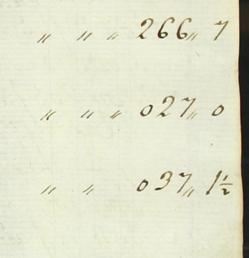 〃 〃 〃 266〃 7
〃 〃 〃 027〃 0
〃 〃 037〃 1½